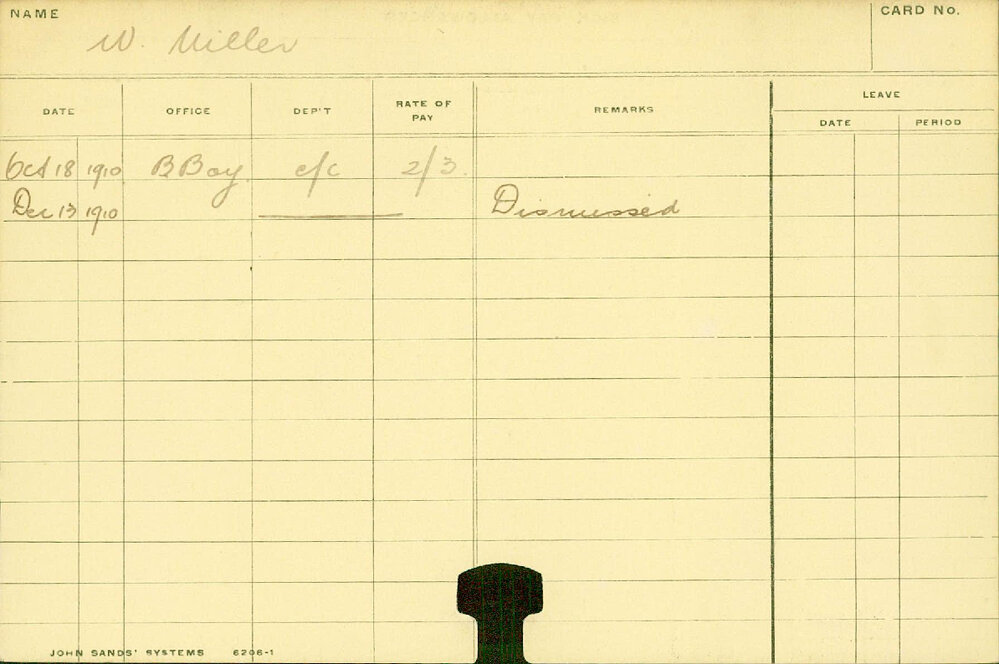 NAME
CARD No.
W. Miller
DATE OFFICE DEP'T RATE OF PAY REMARKS LEAVE
DATE PERIOD
Oct 18 1910 B Boy c/c 2/3.
Dec 13 1910 Dismissed
JOHN SANDS' SYSTEMS 6206-1